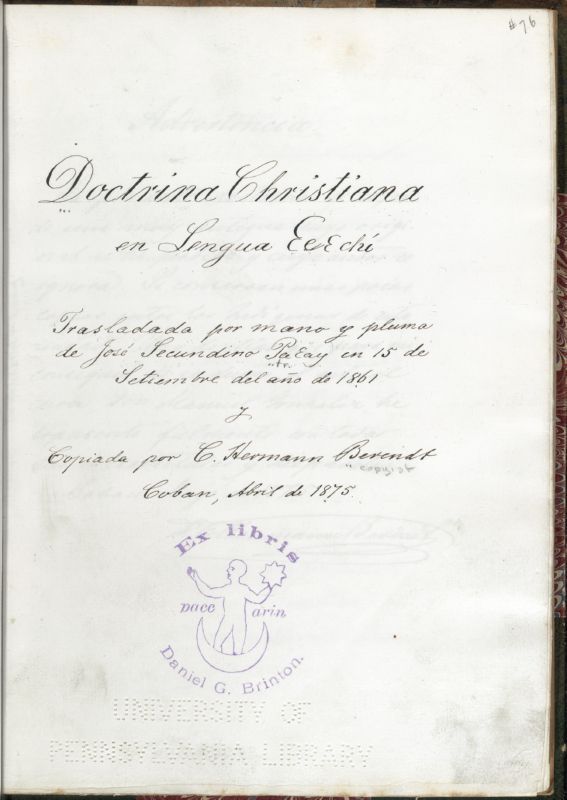 #76
Doctrina Christiana
en Lengua Ɛeꜫchí
Trasladada por mano y pluma
de José Secundino Paꜫay en 15 de
"tr.
Setiembre del año de 1861
y
Copiada por C. Hermann Berendt
" copyist
Coban, Abril de 1875.
Ex libris
pacc arin
Daniel G. Brinton.
UNIVERSITY OF
PENNSYLVANIA LIBRARY